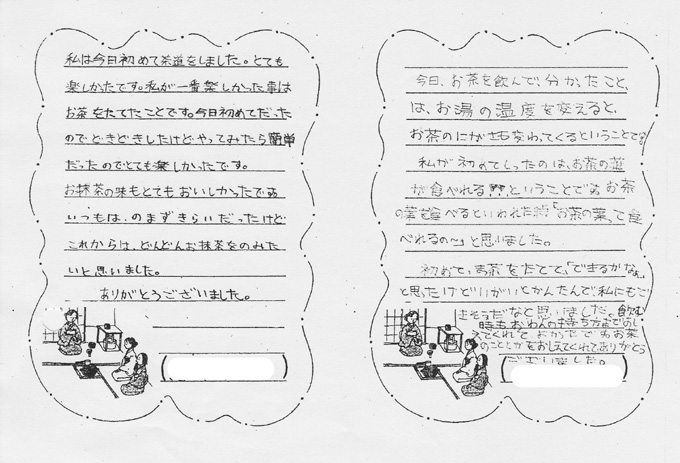 私は今日初めて茶道をしました。とても
楽しかたです。私が一番楽しかった事は
お茶をたてたことです。今日初めてだった
のでどきどきしたけどやってみたら簡単
だったのでとても楽しかったです。
お抹茶の味もとてもおいしかったです。
いつもは、のまずきらいだったけど
これからは、どんどんお抹茶をのみた
いと思いました。
ありがとうございました。
今日、お茶を飲んで、分かったこと
は、お湯の温度を変えると、
お茶のにがさも変わってくるということです。
私が初めてしったのは、お茶の葉
が食べれる!!ということです。お茶
の葉を食べるといわれた時「お茶の葉って食
べれるの~」と思いました。
初めて、お茶をたてて、「できるかなぁ。」
と思たけどいがいとかんたんで、私にもで
きそうだなと思いました。飲む
時もおわんの持ち方までおし
えてくれて よかったです。お茶
のことをおしえてくれてありがとう
ございました。